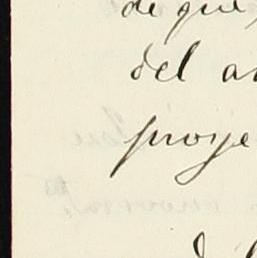 de que
del a
proye